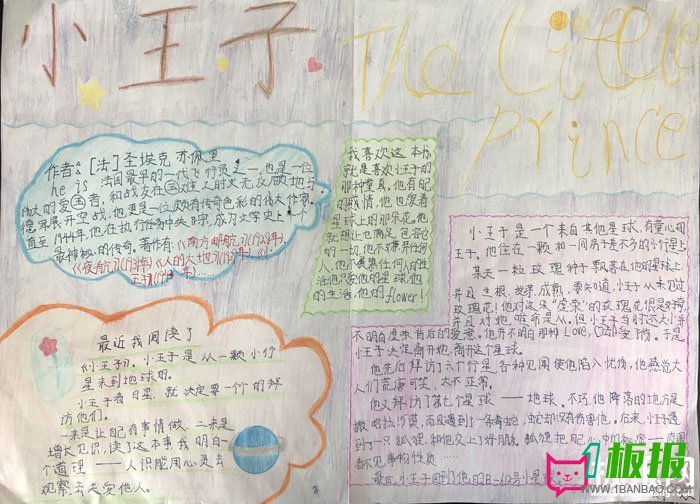 小王子
The Little
Prince
作者:[法]圣埃克苏佩里
he is 法国最早的一代飞行员之一,也是一位
伟大的爱国者,和战友在国难之时义无反顾地与
德寇展开空战,他更是一位颇有传奇色彩的伟大作家。
直至1944年,他在执行任务中失踪,成为文学史上一个
最神秘的传奇。著作有《南方邮航》(1928年)
《夜航》(1931年)《人的大地》(1939年)
王子》(1943年)……
我喜欢这本书
就是喜欢小王子的
那种童真,他有配
的感情,他也爱着
星球上的那朵花。他
就想让也满足,包容它
的一切,他不羡慕任何
人,他不羡慕任何人的生
活,他只爱他的星球,他
的生活,他的flower!
小王子是一个来自其他星球,有童心的
王子。他住在一颗和一间房子差不多的小行星上
某天一粒玫瑰种子飘落在他的星球上,
并且生根、发芽、成熟,要知道,小王子从未见过
玫瑰花!他对这朵"虚荣"的玫瑰花很是好奇
并且对她唯命是从。但小王子等的花太小
不明白虚荣背后的爱意。他并不明白那种Love,
小王子决定离开她,离开这个星球。
他先后拜访了六个行星,各种见闻使他陷入忧伤,他感觉大
人们荒唐可笑、太不正常。
他又拜访了第七个星球——地球,不巧,他降落的地方是
撒哈拉沙漠,而且遇到了一条毒蛇,蛇却没有伤害他。后来,小王子遇
到了一只狐狸,和他交上了好朋友,狐狸把自己心中的秘密——肉眼
看不见事物性质……
最后,小王子回到了他的B-612号小星球
最近我阅读了
《小王子》,小王子是从一颗小行
星来到地球的。
小王子看日星,就决定要一个个的拜
访他们。
一来是让自己有事情做,二来是
增长见识,读了这本书我明白
个道理——人只能用心灵去
观察去关爱他人。
1板报
WWW.1BANBAO.COM